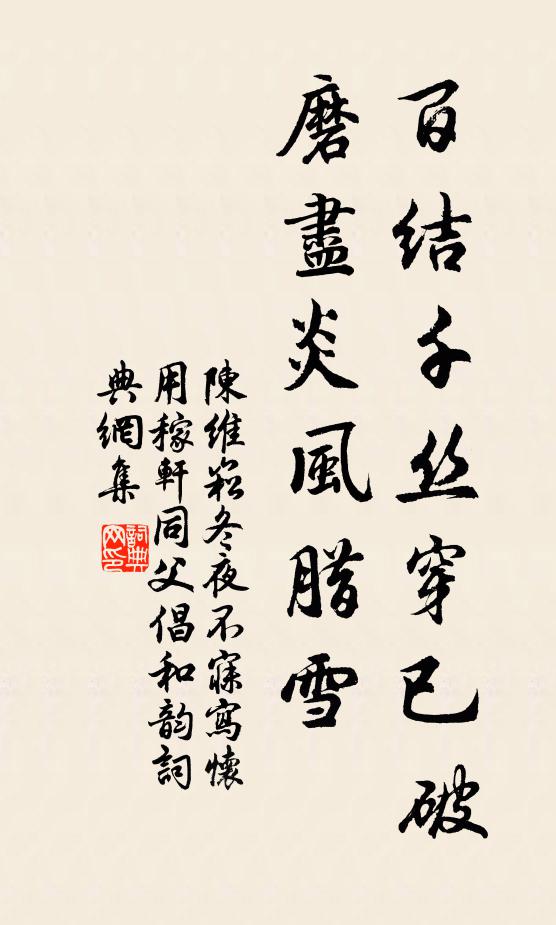 百結千丝穿已破
磨盡炎風腊雪
陳維崧冬夜不寐寫懷
用稼軒同父倡和韵詞
典網集
詞典
网印